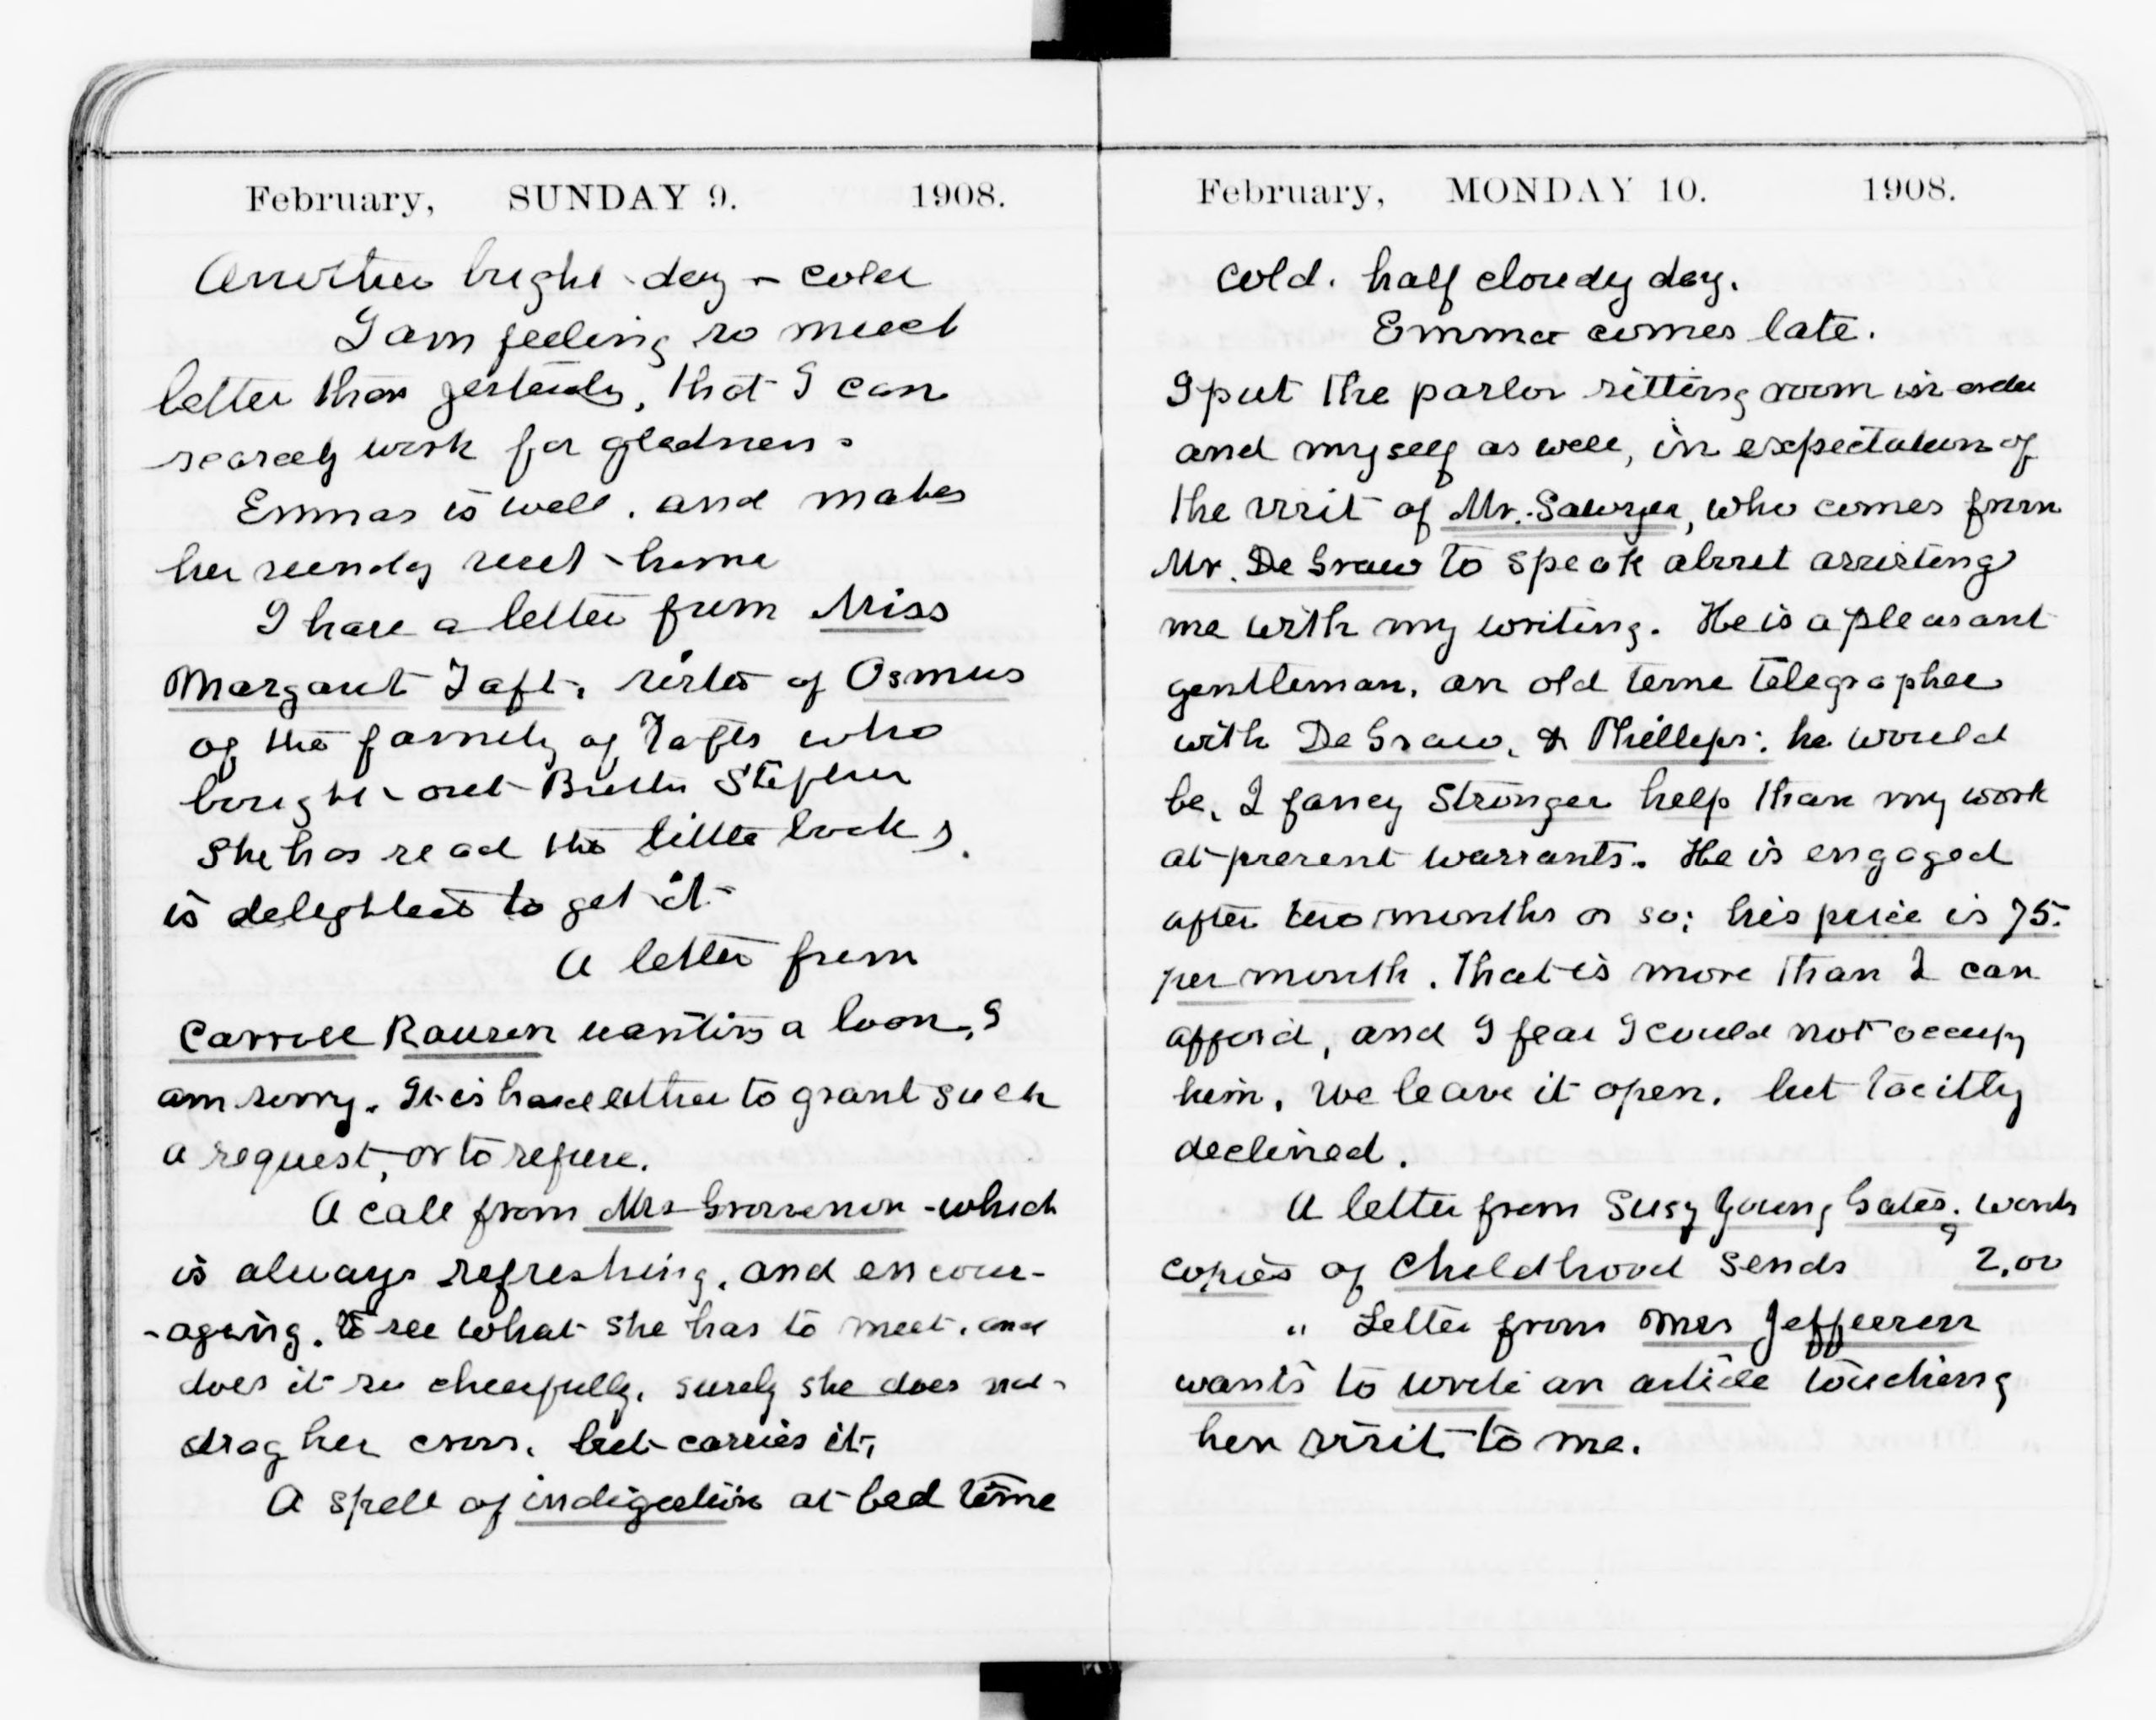 February, SUNDAY 9. 1908.
Another bright day - cold
I am feeling so much
better than yesterday, that I can
scarcely work for gladness.
Emma is well. and makes
her sunday visit home
I have a letter from Miss
Margaret Taft, sister of Osmus
of the family of Tafts who
bought out Brother Stephen
She has read the little book,
is delighted to get it
A letter from
Carroll wanting a loan, I
am sorry. It is hard either to grant such
a request, or to refuse.
A call from Mrs Grosvenor - which
is always refreshing, and encour-
-aging. To see what she has to meet, and
does it so cheerfully, surely she does not
drag her cross, but carries it,
A spell of indigestion at bed time
February, MONDAY 10. 1908.
Cold. half cloudy day.
Emma comes late.
I put the parlor sitting room in order
and myself as well, in expectation of
the visit of Mr. Sawyer, who comes from
Mr. De Graw to speak about assisting
me with my writing. He is a pleasant
gentleman, an old time telegrapher
with De Graw, & Phillips: he would
be, I fancy Stronger help than my work
at present warrants. He is engaged
after two months or so; his price is 75.
per month. That is more than I can
afford, and I fear I could not occupy
him, We leave it open, but tacitly
declined.
A letter from Susy Young Gates, wants
copies of Childhood sends 2.00
" Letter from Mrs Jefferson
wants to write an article touching
her visit to me.